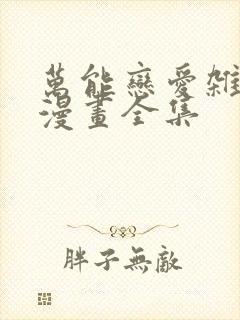 萬能戀愛雜
漫畫全集
胖子無敵